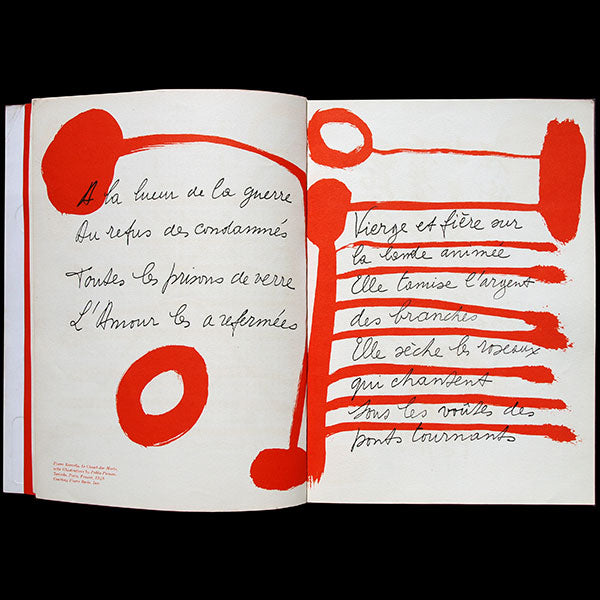 A la lueur de la guerre
Au refus des condamnés
Toutes les prisons de verre
L'Amour les a refermées
Pierre Reverdy, Le Chant des Morts,
with illustrations by Pablo Picasso.
Tériade, Paris, France, 1948
Courtesy Pierre Berès, Inc.
Vierge et fière sur
la bande animée
Elle tamise l'argent
des branches
Elle sèche les roseaux
qui chantent
sous les voûtes des
ponts tournants